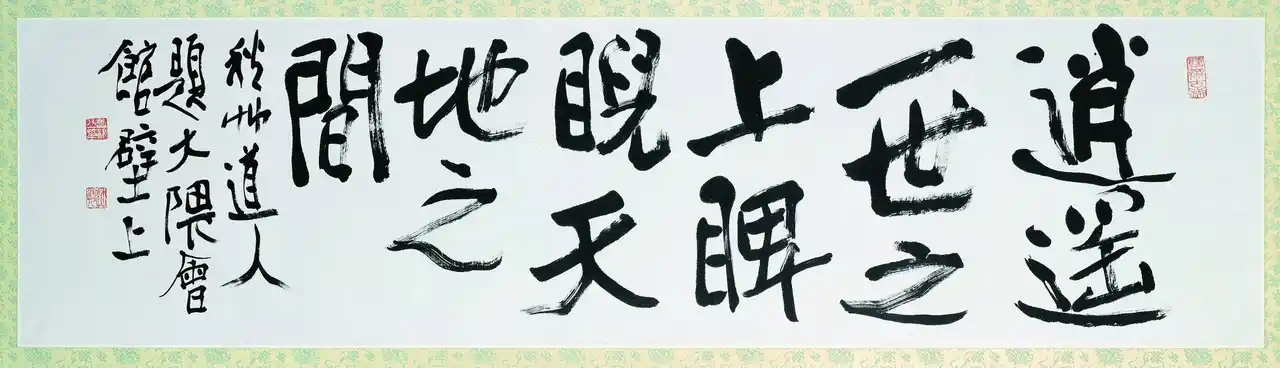 逍遙
一世之
上睥
睨天
地之
間
秋艸道人
題大隈會
館壁上